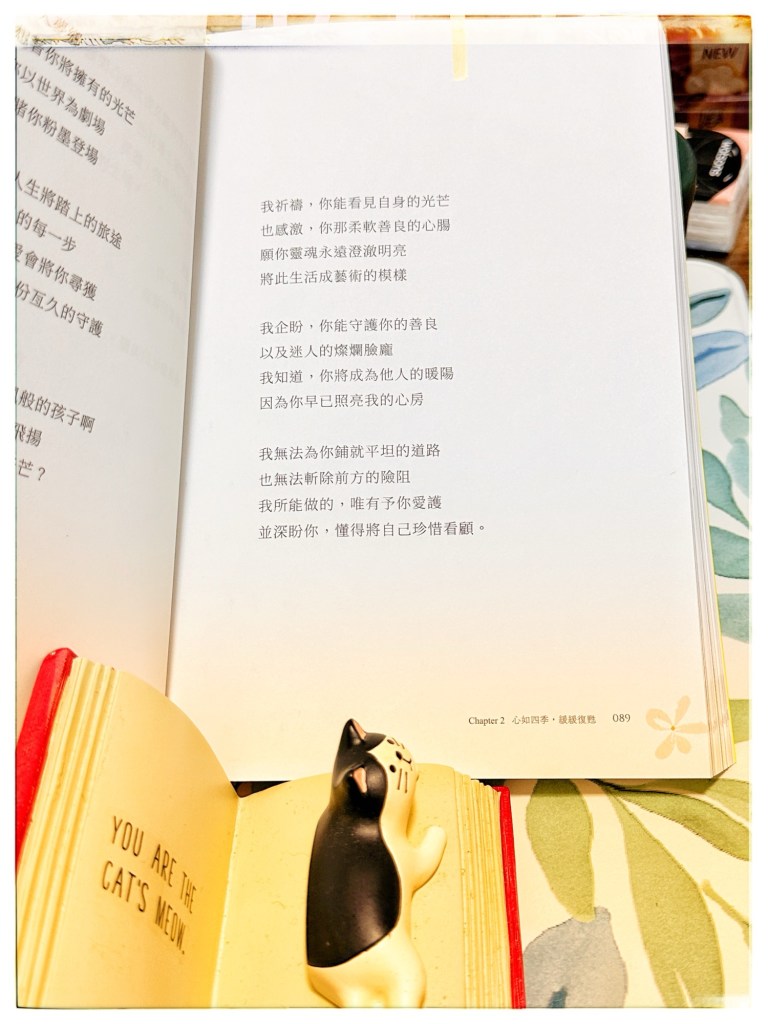 你將擁有的光芒
你以世界為劇場
睹你粉墨登場
人生將踏上的旅途
的每一步
愛會將你尋獲
份亙久的守護
般的孩子啊
飛揚
芒？
我祈禱，你能看見自身的光芒
也感激，你那柔軟善良的心腸
願你靈魂永遠澄澈明亮
將此生活成藝術的模樣
我企盼，你能守護你的善良
以及迷人的燦爛臉龐
我知道，你將成為他人的暖陽
因為你早已照亮我的心房
我無法為你鋪就平坦的道路
也無法斬除前方的險阻
我所能做的，唯有予你愛護
並深盼你，懂得將自己珍惜看顧。
Chapter 2 心如四季・緩緩復甦 089
NEW
YOU ARE THE
CAT'S MEOW.